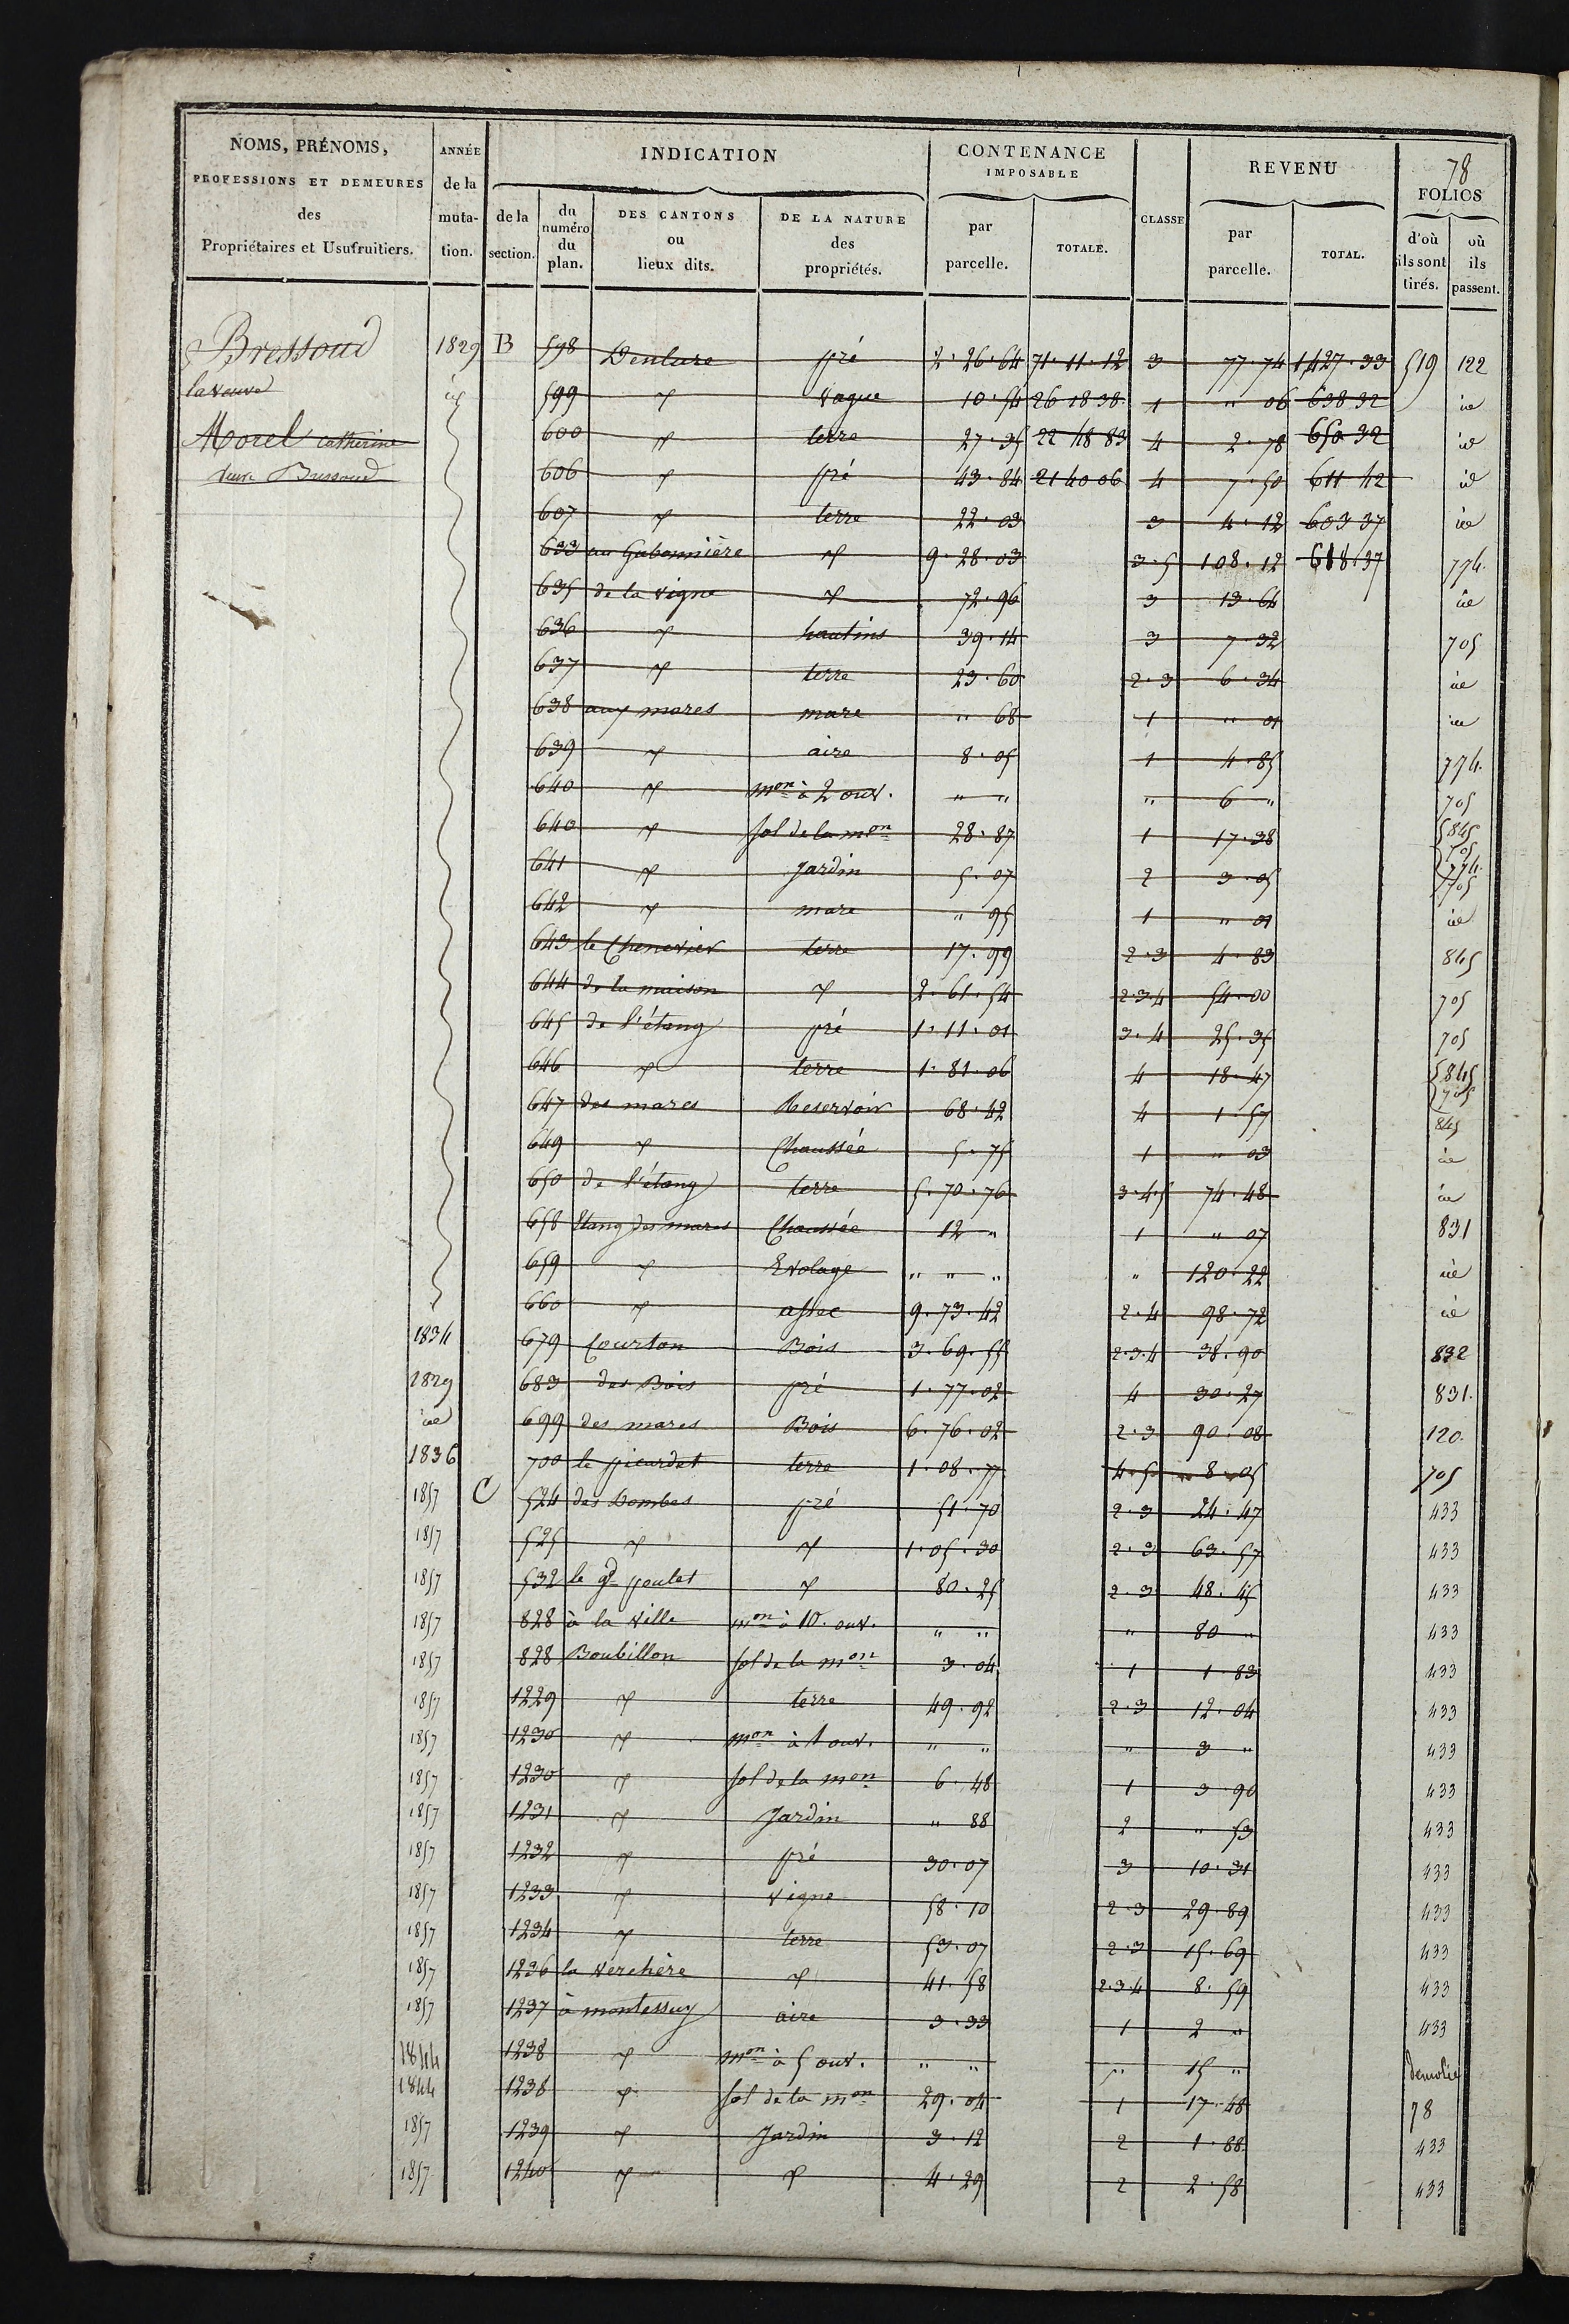 78
NOMS, PRÉNOMS, PROFESSIONS ET DEMEURES des Propriétaires et Usufruitiers.
ANNÉE de la mutation.
INDICATION
de la section.
du numéro du plan.
DES CANTONS ou lieux dits.
DE LA NATURE des propriétés.
CONTENANCE IMPOSABLE
par parcelle.
TOTALE.
CLASSE
REVENU
par parcelle.
TOTAL.
FOLIOS
d'où ils sont tirés.
où ils passent.
Bressoud 1829 B 598 Denlure pré 2.26.64 71.11.12 3 77.74 1,427.33 519 122
la veuve id 599 " vague 10.54 26 18 38 1 " 06 638 32 id
Morel Catherine 600 " terre 27.35 22 48 83 4 2.78 650 32 id
veuve Bressoud 606 " pré 43.84 21 40 06 4 7.50 611 42 id
607 " terre 22.03 3 4.12 603 37 id
633 au Gabonnière " 9.28.03 3.5 108.12 618 37 774.
635 de la vigne " 72.96 3 13.64 id
636 " hautins 39.14 3 7.32 705
637 " terre 23.60 2.3 6.34 id
638 aux mares mare " 68 1 " 01 id
639 " aire 8.05 1 4.85 774.
640 " mon à 2 ouv. " " " 6 " 705
640 " sol de la mon 28.87 1 17.38 845 705
641 " Jardin 5.07 2 3.05 774. 705
642 " mare " 95 1 " 01 id
643 le Chenevier terre 17.99 2.3 4.83 845
644 de la maison " 2.61.54 2.3.4 54.00 705
645 de l'étang pré 1.11.01 3.4 25.35 705
646 " terre 1.81.06 4 18.47 845 705
647 des mares Reservoir 68.42 4 1.57 845
649 " Chaussée 5.75 1 " 03 id
650 de l'étang terre 5.70.76 3.4.5 74.48 id
658 Etang des mares Chaussée 12 " 1 " 07 831
659 " Evolage " " " " 120.22 id
660 " assec 9.73.42 2.4 98.72 id
1834 679 Courton Bois 3.69.55 2.3.4 38.90 832
1829 683 des Bois pré 1.77.02 4 30.27 831.
id 699 des mares Bois 6.76.02 2.3 90.08 120.
1836 700 le picardet terre 1.08.77 4.5 8.05 705
1857 C 524 des Dombes pré 51.70 2.3 24.47 433
1857 525 " " 1.05.30 2.3 63.57 433
1857 532 le gd poulet " 80.25 2.3 48.45 433
1857 828 à la ville mon à 10. ouv. " " " 80 " 433
1857 828 Boubillon sol de la mon 3.04 1 1.83 433
1857 1229 " terre 49.92 2.3 12.04 433
1857 1230 " mon à 1 ouv. " " " 3 " 433
1857 1230 " sol de la mon 6.48 1 3.90 433
1857 1231 " Jardin " 88 2 " 53 433
1857 1232 " pré 30.07 3 10.31 433
1857 1233 " vigne 58.10 2.3 29.89 433
1857 1234 " terre 53.07 2.3 15.69 433
1857 1236 la verchère " 41.58 2.3.4 8.59 433
1857 1237 à montessuy aire 3.33 1 2 " 433
1844 1238 " mon à 5 ouv. " " " 15 " demolie
1844 1238 " sol de la mon 29.04 1 17.48 78
1857 1239 " Jardin 3.12 2 1.88 433
1857 1240 " " 4.29 2 2.58 433